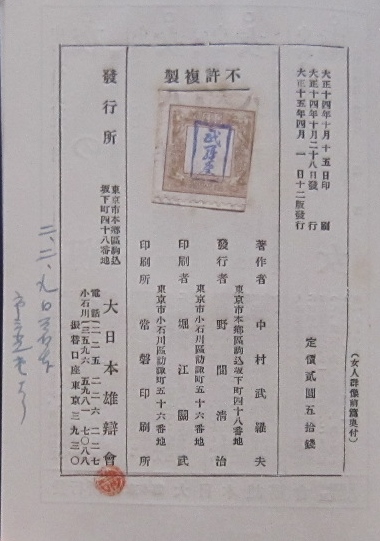 大正十四年十月十五日印刷
大正十四年十月二十八日發行
大正十五年四月一日十二版發行
定價貳圓五拾錢
（女人群像前篇奥付）
不許複製
著作者 中村武羅夫
東京市本鄕區駒込坂下町四十八番地
發行者 野間淸治
東京市小石川區諏訪町五十六番地
印刷者 堀江關武
東京市小石川區諏訪町五十六番地
印刷所 常磐印刷所
發行所
東京市本鄕區駒込
坂下町四十八番地
大日本雄辯會
電話
小石川
振替口座東京三九三〇